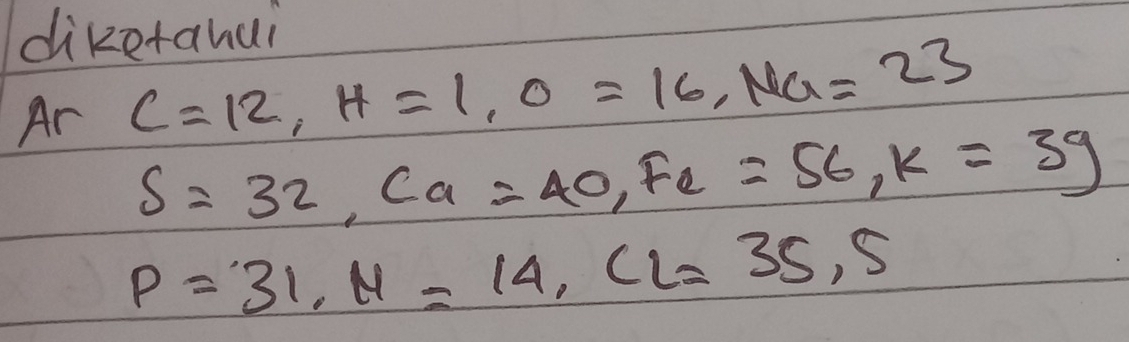 diketahui
Ar C = 12, H = 1, O = 16, Na = 23
S = 32, Ca = 40, Fe = 56, K = 39
P = 31, N = 14, Cl = 35,5